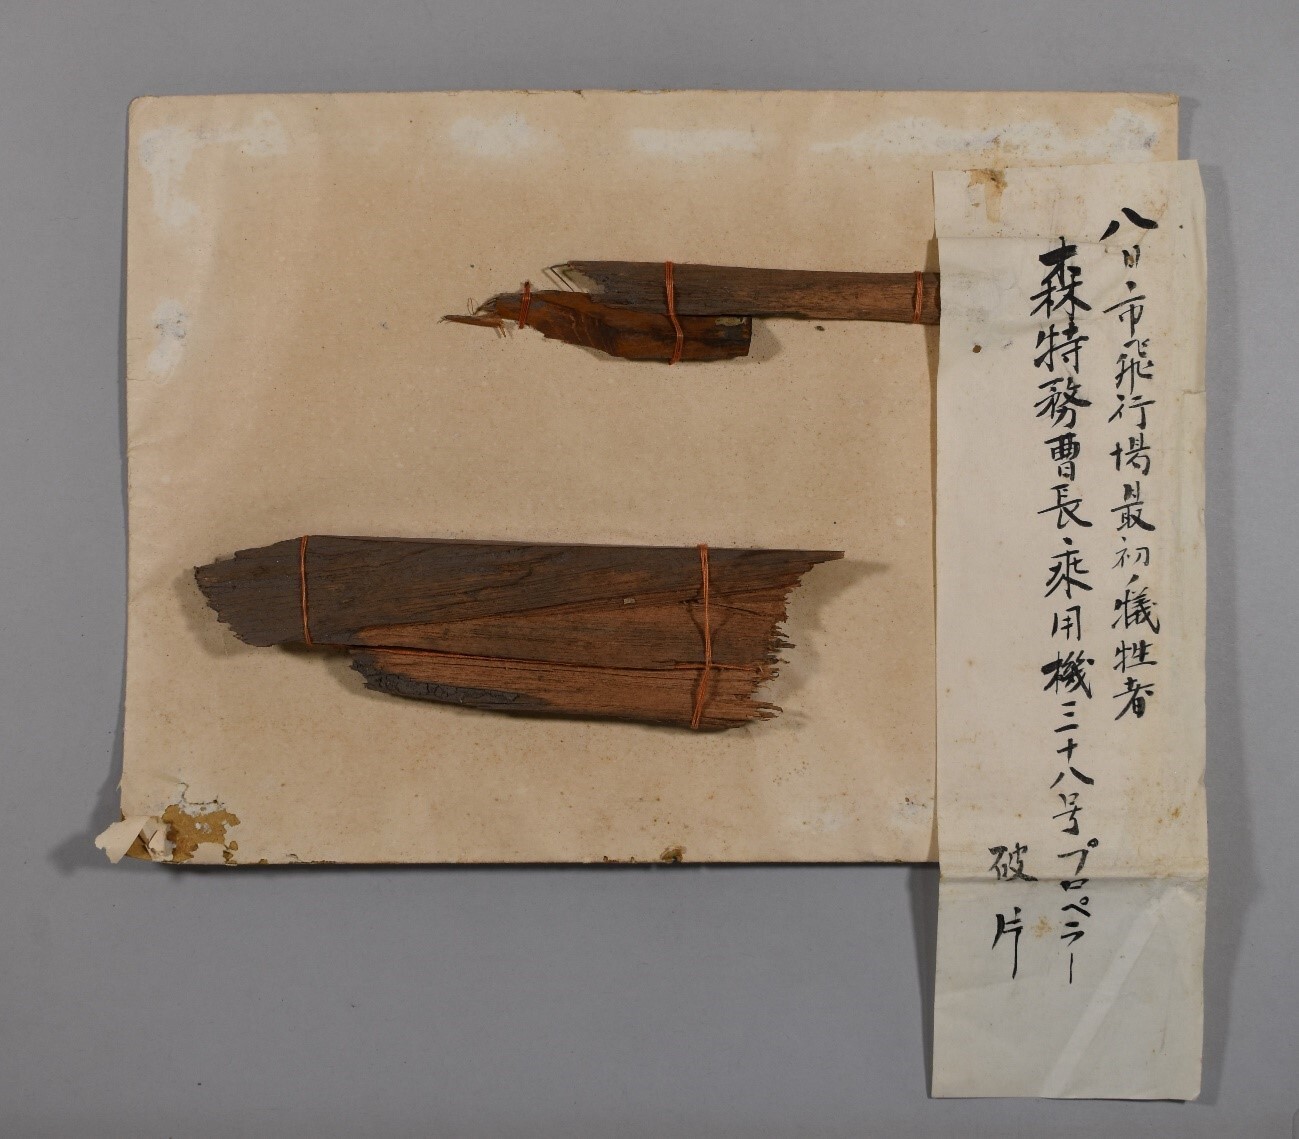 八日市飛行場最初ノ犠牲者
森特務曹長乗用機三十八号プロペラー
破片